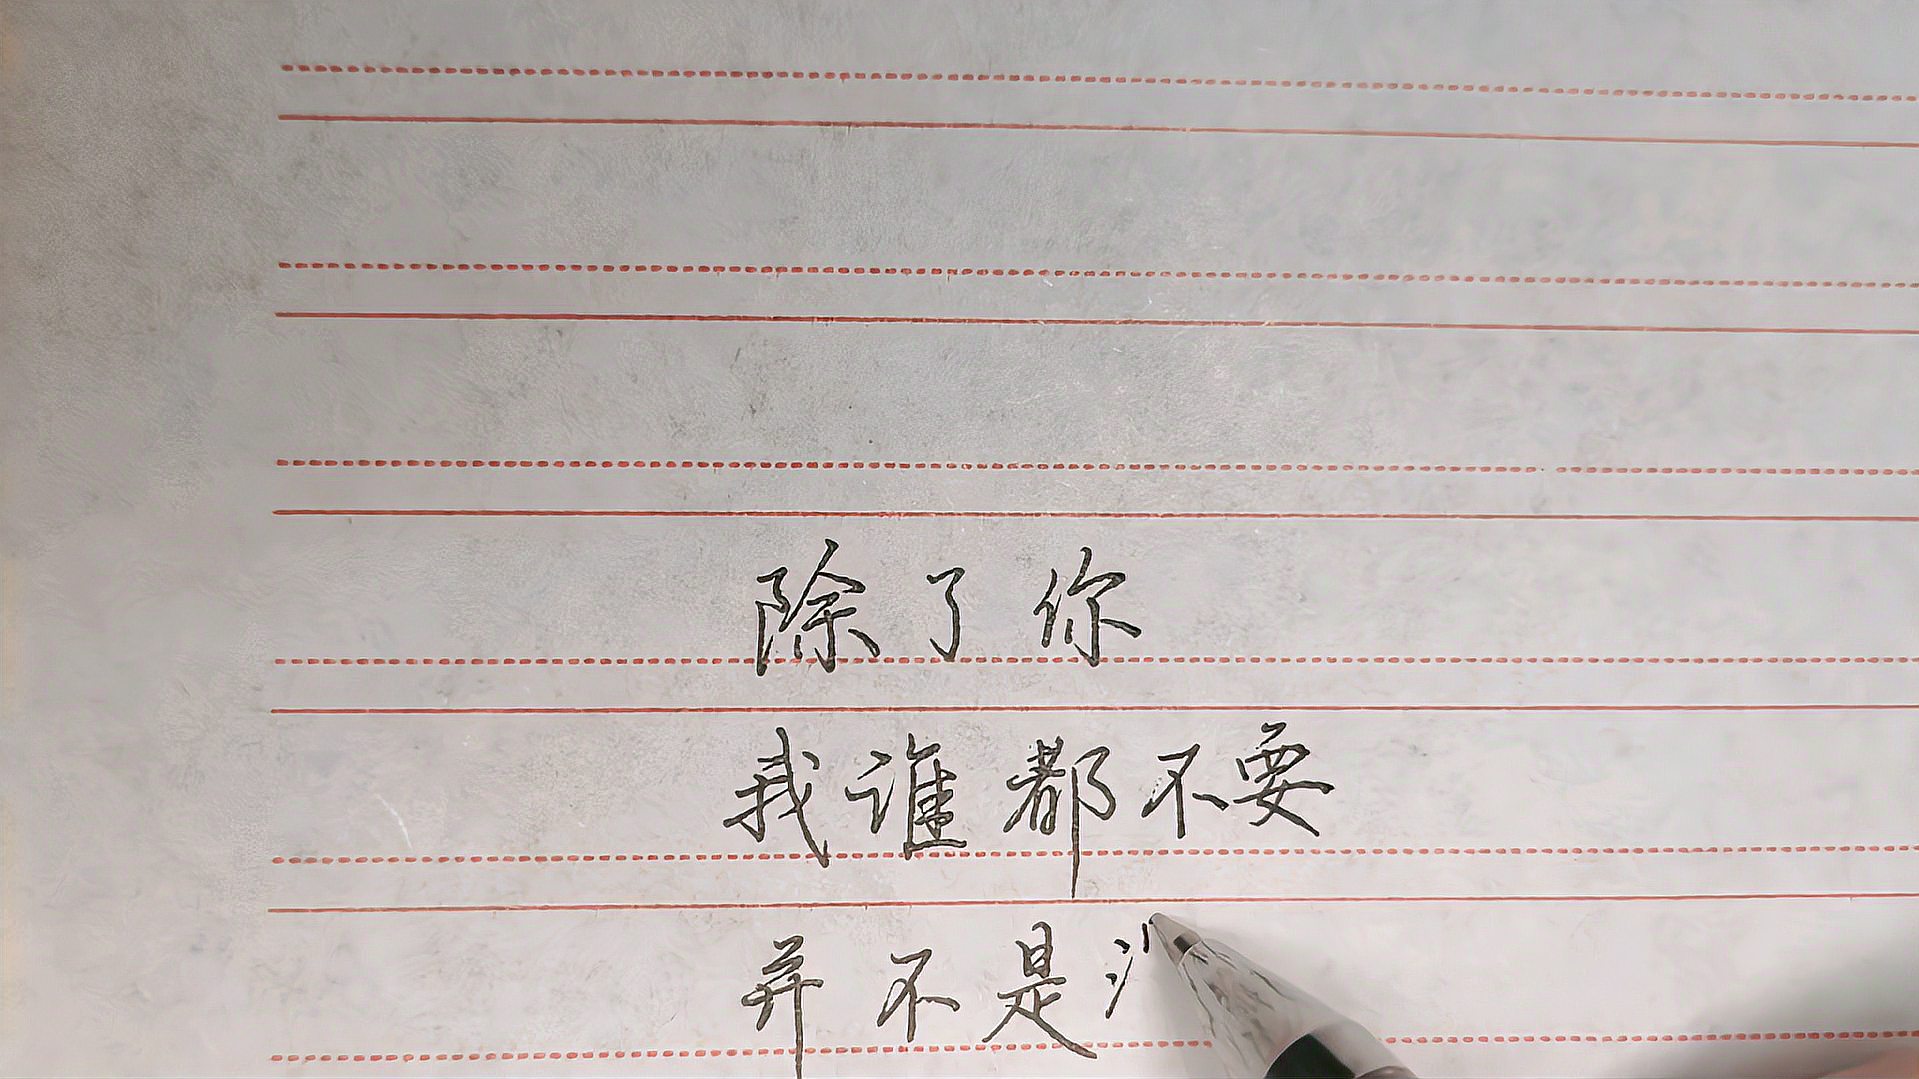 除了你
我谁都不要
并不是